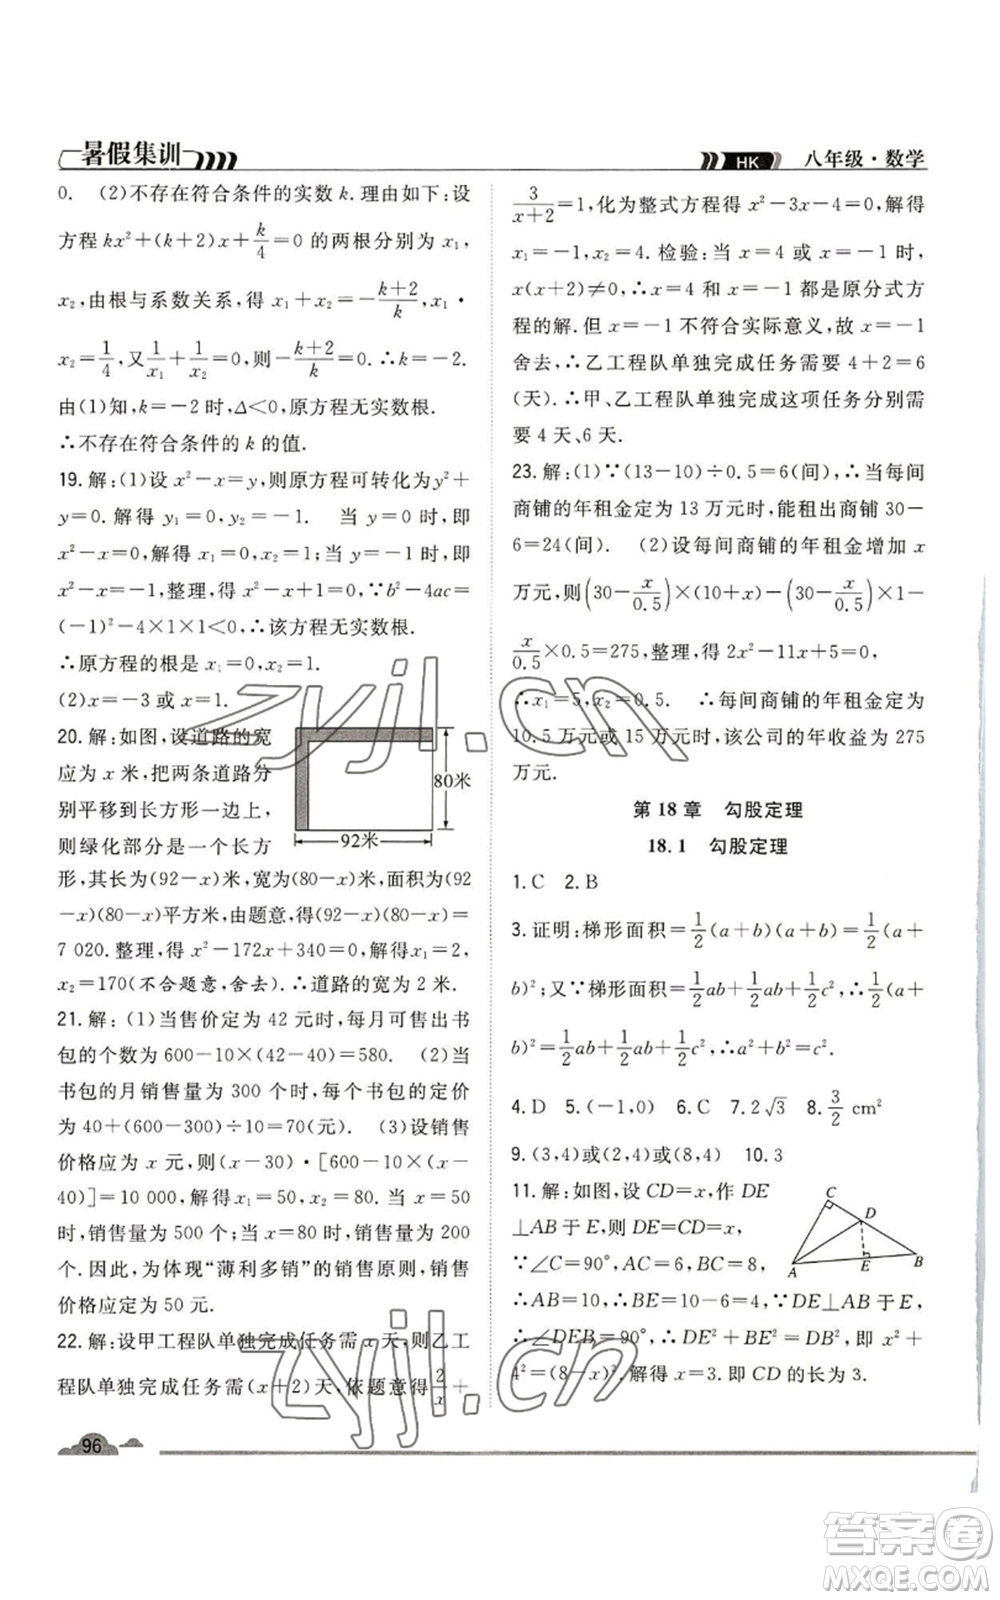 暑假集训
HK 八年级·数学
0. (2)不存在符合条件的实数 k. 理由如下:设
方程 kx²+(k+2)x+k/4=0 的两根分别为 x₁,
x₂,由根与系数关系,得 x₁+x₂=-(k+2)/k,x₁·
x₂=1/4,又1/x₁+1/x₂=0,则-(k+2)/k=0.∴k=-2.
由(1)知,k=-2 时,Δ<0,原方程无实数根.
∴不存在符合条件的 k 的值.
19.解:(1)设 x²-x=y,则原方程可转化为y²+
y=0.解得 y₁=0,y₂=-1. 当 y=0 时,即
x²-x=0,解得 x₁=0,x₂=1;当 y=-1 时,即
x²-x=-1,整理,得 x²-x+1=0,∵b²-4ac=
(-1)²-4×1×1<0,∴该方程无实数根.
∴原方程的根是 x₁=0,x₂=1.
(2)x=-3 或 x=1.
20.解:如图,设道路的宽
应为 x 米,把两条道路分
别平移到长方形一边上,
则绿化部分是一个长方
80米
92米
形,其长为(92-x)米,宽为(80-x)米,面积为(92
-x)(80-x)平方米,由题意,得(92-x)(80-x)=
7 020.整理,得 x²-172x+340=0,解得 x₁=2,
x₂=170(不合题意,舍去).∴道路的宽为 2 米.
21.解:(1)当售价定为 42 元时,每月可售出书
包的个数为 600-10×(42-40)=580. (2)当
书包的月销售量为 300 个时,每个书包的定价
为 40+(600-300)÷10=70(元). (3)设销售
价格应为 x 元,则(x-30)·[600-10(x-
40)]=10 000,解得 x₁=50,x₂=80.当 x=50
时,销售量为 500 个;当 x=80 时,销售量为 200
个.因此,为体现“薄利多销”的销售原则,销售
价格应定为 50 元.
22.解:设甲工程队单独完成任务需 x 天,则乙工
程队单独完成任务需(x+2)天,依题意得2/x+
96
3/(x+2)=1,化为整式方程得 x²-3x-4=0,解得
x₁=-1,x₂=4.检验:当 x=4 或 x=-1 时,
x(x+2)≠0,∴x=4 和 x=-1 都是原分式方
程的解.但 x=-1 不符合实际意义,故 x=-1
舍去,∴乙工程队单独完成任务需要 4+2=6
(天).∴甲、乙工程队单独完成这项任务分别需
要 4 天、6 天.
23.解:(1)∵(13-10)÷0.5=6(间),∴当每间
商铺的年租金定为 13 万元时,能租出商铺 30-
6=24(间). (2)设每间商铺的年租金增加 x
万元,则(30-x/0.5)×(10+x)-(30-x/0.5)×1-
x/0.5×0.5=275,整理,得 2x²-11x+5=0,
∴x₁=5,x₂=0.5. ∴每间商铺的年租金定为
10.5 万元或 15 万元时,该公司的年收益为 275
万元.
第 18 章 勾股定理
18.1 勾股定理
1.C 2.B
3.证明:梯形面积=1/2(a+b)(a+b)=1/2(a+
b)²;又∵梯形面积=1/2ab+1/2ab+1/2c²,∴1/2(a+
b)²=1/2ab+1/2ab+1/2c²,∴a²+b²=c².
4.D 5.(-1,0) 6.C 7.2√3 8.3/2 cm²
9.(3,4)或(2,4)或(8,4) 10.3
11.解:如图,设 CD=x,作 DE
⊥AB 于 E,则 DE=CD=x,
∵∠C=90°,AC=6,BC=8,
C
D
A
E
B
∴AB=10,∴BE=10-6=4,∵DE⊥AB 于 E,
∴∠DEB=90°,∴DE²+BE²=DB²,即 x²+
4²=(8-x)²,解得 x=3.即 CD 的长为 3.
zyjl.cn
zyjl.cn
答案圈
MXQE.COM